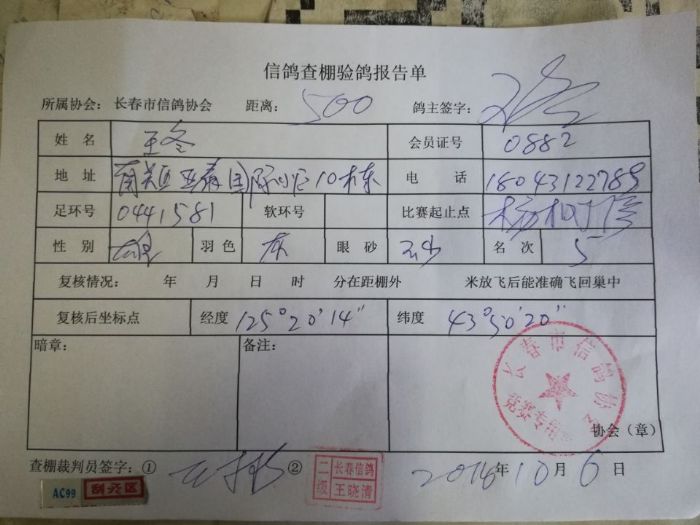 信鸽查棚验鸽报告单
所属协会：长春市信鸽协会 距离：500 鸽主签字：
姓名 王冬 会员证号 0882
地址 南关区亚泰国际小区10栋 电话 18043122789
足环号 0441581 软环号 比赛起止点
性别 雄 羽色 灰 眼砂 砂 名次 5
复核情况： 年 月 日 时 分在距棚外 米放飞后能准确飞回巢中
复核后坐标点 经度 125°20'14" 纬度 43°50'20"
暗章： 备注：
长春市信鸽协会
竞赛专用章
协会（章）
查棚裁判员签字：① ② 二级 长春信鸽 王晓清 2016年10月6日
AC99 刮灰区